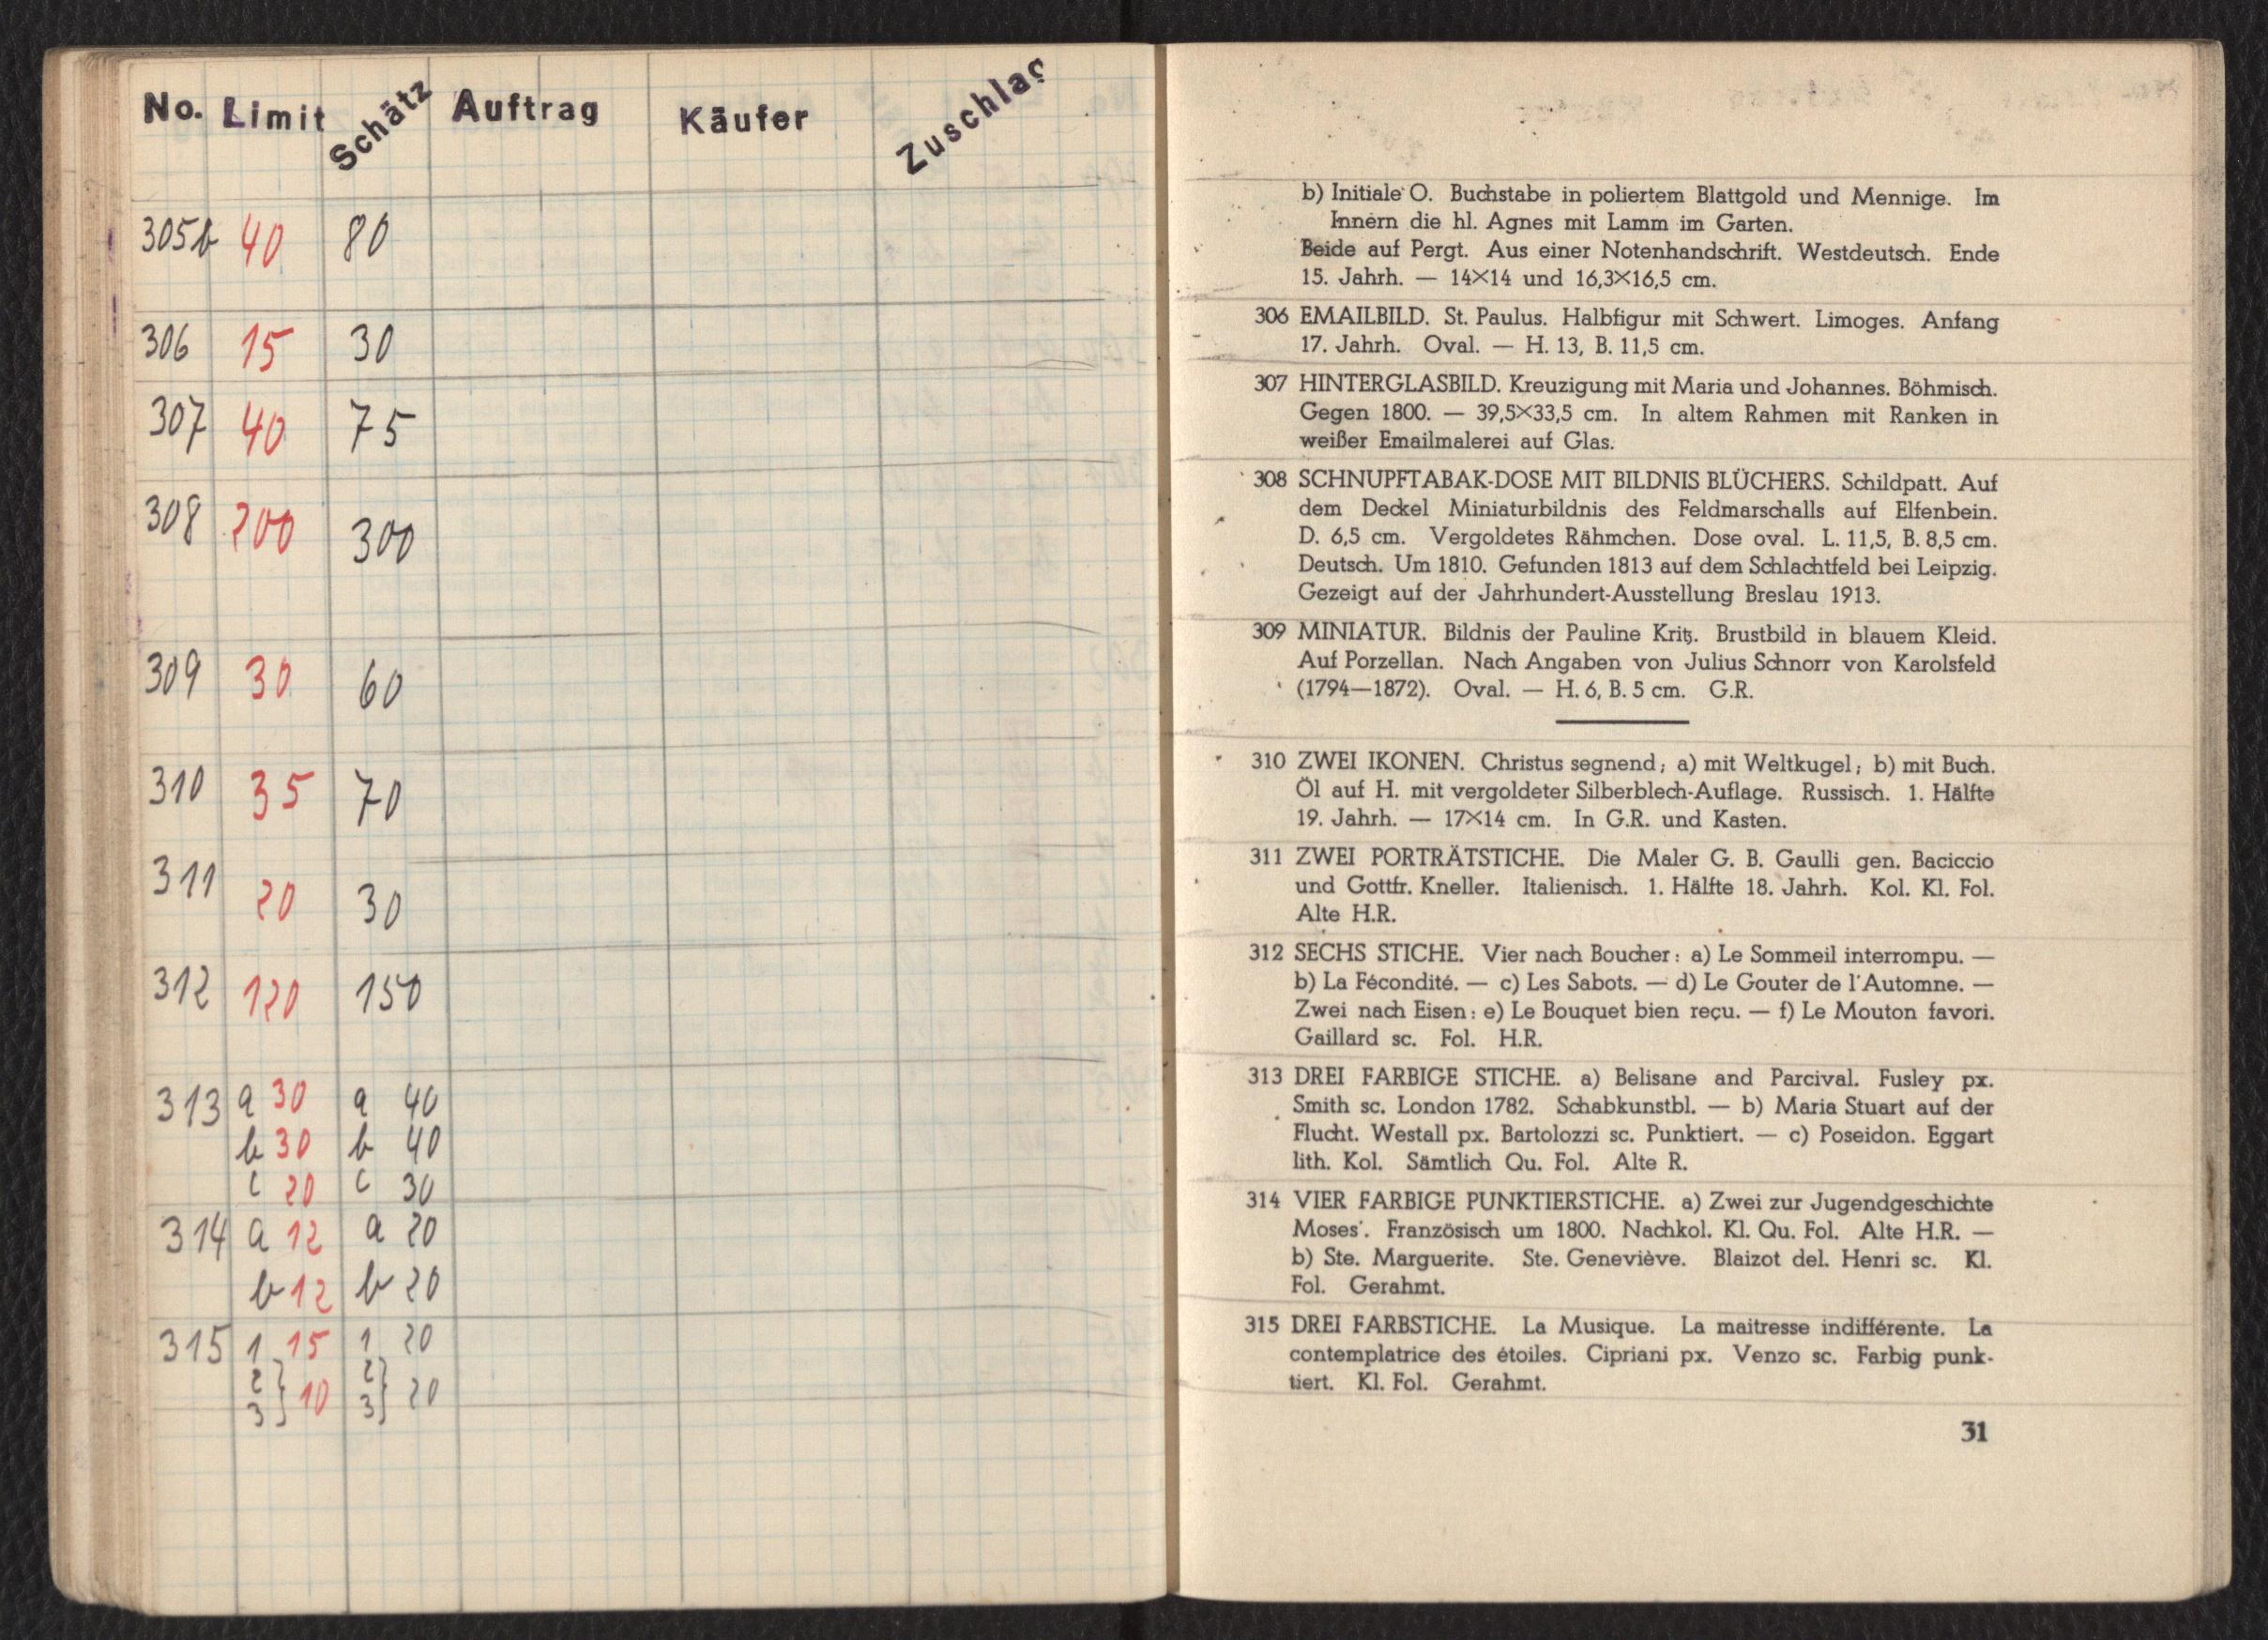 No. Limit Schätz Auftrag Käufer Zuschlag
305b 40 80
306 15 30
307 40 75
308 200 300
309 30 60
310 35 70
311 20 30
312 120 150
313 a 30 a 40
b 30 b 40
c 20 c 30
314 a 12 a 20
b 12 b 20
315 1 15 1 20
2 } 10 2 } 20
3 3
b) Initiale O. Buchstabe in poliertem Blattgold und Mennige. Im
Innern die hl. Agnes mit Lamm im Garten.
Beide auf Pergt. Aus einer Notenhandschrift. Westdeutsch. Ende
15. Jahrh. — 14×14 und 16,3×16,5 cm.
306 EMAILBILD. St. Paulus. Halbfigur mit Schwert. Limoges. Anfang
17. Jahrh. Oval. — H. 13, B. 11,5 cm.
307 HINTERGLASBILD. Kreuzigung mit Maria und Johannes. Böhmisch.
Gegen 1800. — 39,5×33,5 cm. In altem Rahmen mit Ranken in
weißer Emailmalerei auf Glas.
308 SCHNUPFTABAK-DOSE MIT BILDNIS BLÜCHERS. Schildpatt. Auf
dem Deckel Miniaturbildnis des Feldmarschalls auf Elfenbein.
D. 6,5 cm. Vergoldetes Rähmchen. Dose oval. L. 11,5, B. 8,5 cm.
Deutsch. Um 1810. Gefunden 1813 auf dem Schlachtfeld bei Leipzig.
Gezeigt auf der Jahrhundert-Ausstellung Breslau 1913.
309 MINIATUR. Bildnis der Pauline Kritz. Brustbild in blauem Kleid.
Auf Porzellan. Nach Angaben von Julius Schnorr von Karolsfeld
(1794—1872). Oval. — H. 6, B. 5 cm. G.R.
310 ZWEI IKONEN. Christus segnend; a) mit Weltkugel; b) mit Buch.
Öl auf H. mit vergoldeter Silberblech-Auflage. Russisch. 1. Hälfte
19. Jahrh. — 17×14 cm. In G.R. und Kasten.
311 ZWEI PORTRÄTSTICHE. Die Maler G. B. Gaulli gen. Baciccio
und Gottfr. Kneller. Italienisch. 1. Hälfte 18. Jahrh. Kol. Kl. Fol.
Alte H.R.
312 SECHS STICHE. Vier nach Boucher: a) Le Sommeil interrompu. —
b) La Fécondité. — c) Les Sabots. — d) Le Gouter de l'Automne. —
Zwei nach Eisen: e) Le Bouquet bien reçu. — f) Le Mouton favori.
Gaillard sc. Fol. H.R.
313 DREI FARBIGE STICHE. a) Belisane and Parcival. Fusley px.
Smith sc. London 1782. Schabkunstbl. — b) Maria Stuart auf der
Flucht. Westall px. Bartolozzi sc. Punktiert. — c) Poseidon. Eggart
lith. Kol. Sämtlich Qu. Fol. Alte R.
314 VIER FARBIGE PUNKTIERSTICHE. a) Zwei zur Jugendgeschichte
Moses'. Französisch um 1800. Nachkol. Kl. Qu. Fol. Alte H.R. —
b) Ste. Marguerite. Ste. Geneviève. Blaizot del. Henri sc. Kl.
Fol. Gerahmt.
315 DREI FARBSTICHE. La Musique. La maitresse indifférente. La
contemplatrice des étoiles. Cipriani px. Venzo sc. Farbig punk-
tiert. Kl. Fol. Gerahmt.
31